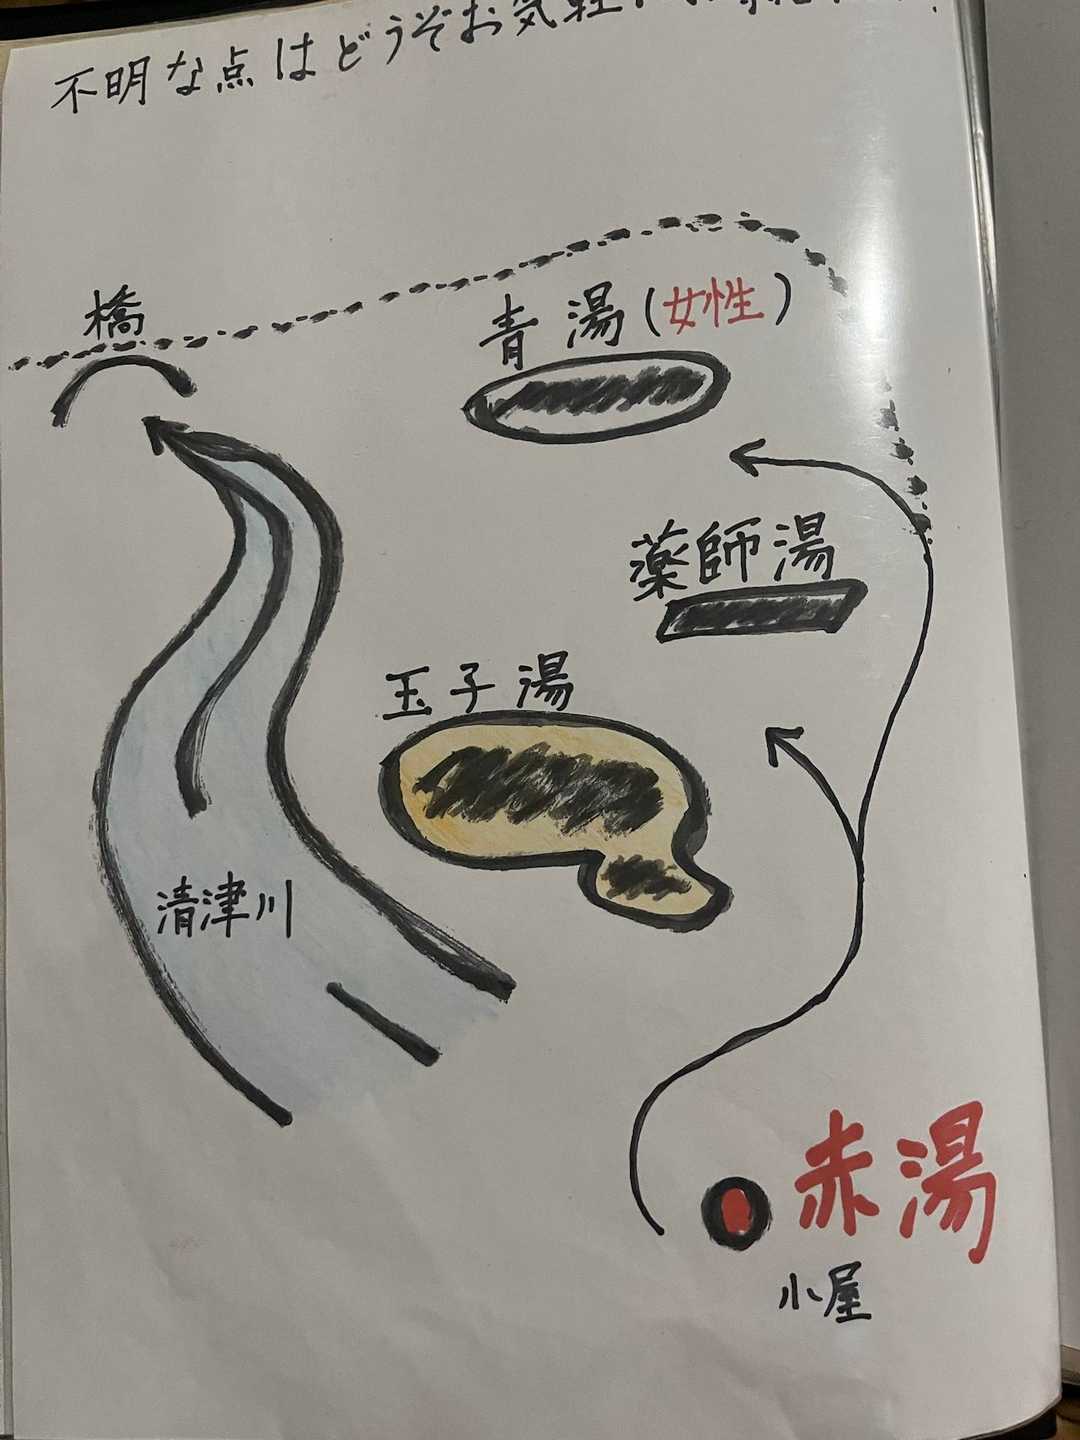 不明な点はどうぞお気軽に
橋
青湯(女性)
薬師湯
玉子湯
清津川
赤湯
小屋